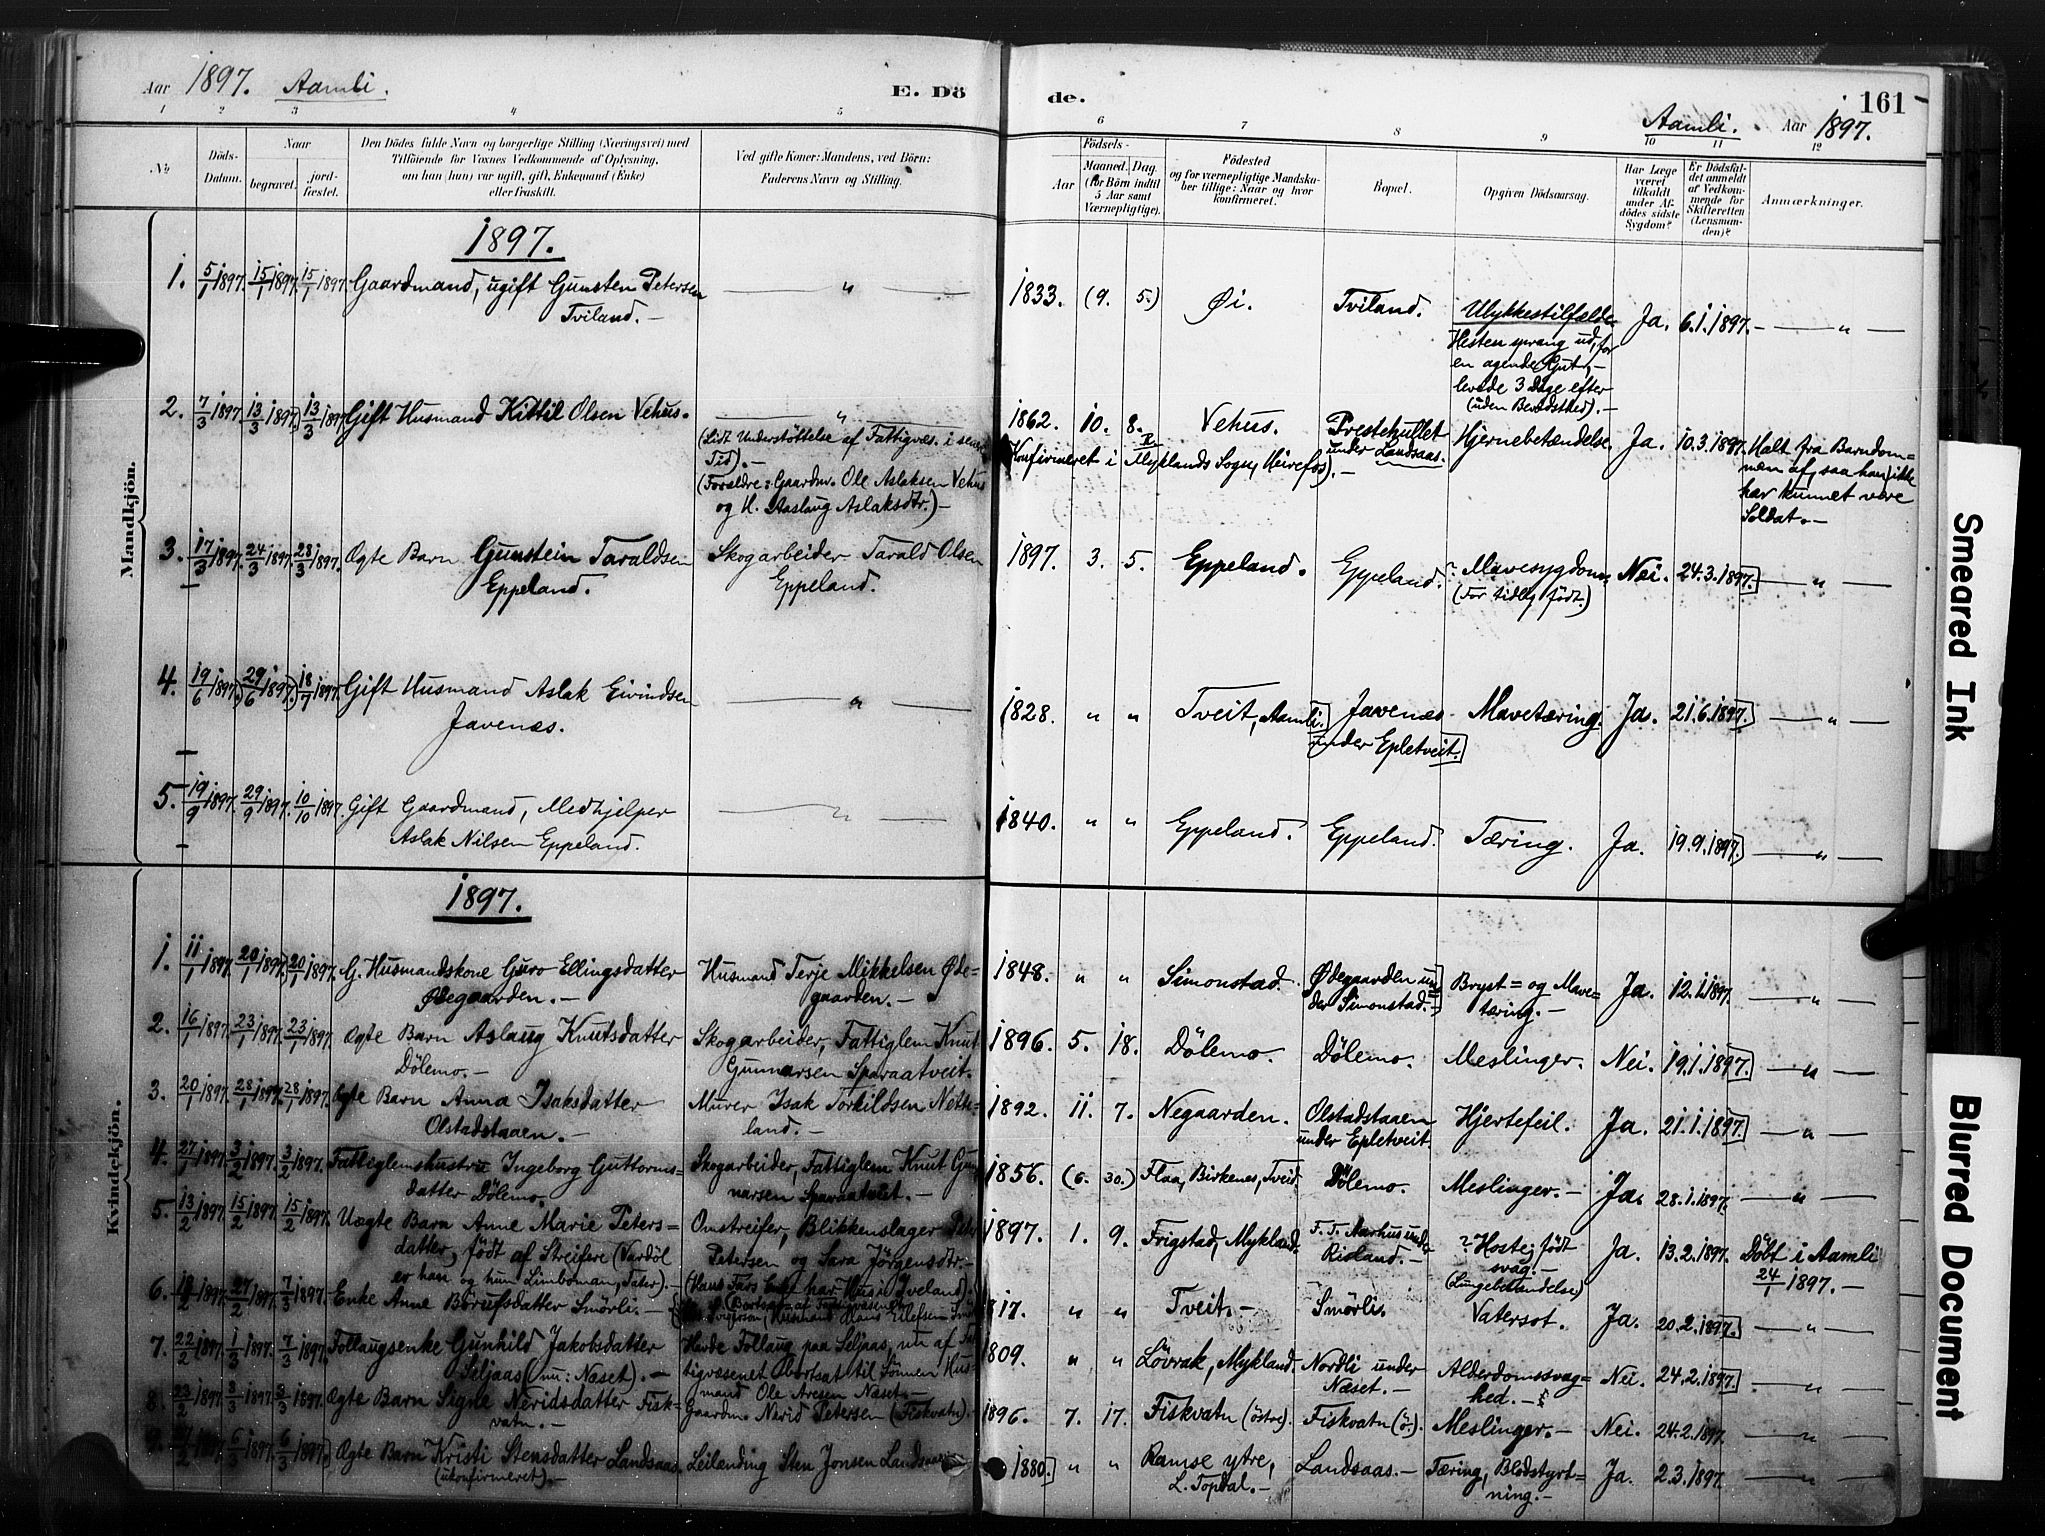 Aar 1897. Aamli.
E. Dö
1 2 3 4 5
No
Döds-Datum.
Naar
begravet.
jordfæstet.
Den Dödes fulde Navn og borgerlige Stilling (Næringsvei) med
Tilföiende for Voxnes Vedkommende af Oplysning,
om han (hun) var ugift, gift, Enkemand (Enke)
eller fraskilt.
Ved gifte Koner: Mandens, ved Börn:
Faderens Navn og Stilling.
Mandkjön.
1897.
1. 5/1 1897. 15/1 1897. 15/1 1897. Gaardmand, ugift Gunsten Petersen — „ —
Tviland. —
2. 7/3 1897. 13/3 1897. 13/3 1897. Gift Husmand Kittil Olsen Vehus. — „ —
(Lidt Understöttelse af Fattigvæs. i senere
Tid). —
(Forældre: Gaardm. Ole Aslaksen Vehus
og H. Aaslaug Aslaksdtr.) —
3. 17/3 1897. 24/3 1897. 28/3 1897. Ægte Barn Gunstein Taraldsen Skogarbeider Tarald Olsen
Eppeland. Eppeland.
4. 19/6 1897. 29/6 1897. 18/7 1897. Gift Husmand Aslak Eivindsen — „ —
Javenæs.
5. 19/9 1897. 29/9 1897. 10/10 1897. Gift Gaardmand, Medhjelper — „ —
Aslak Nilsen Eppeland.
Kvindekjön.
1897.
1. 11/1 1897. 20/1 1897. 20/1 1897. G. Husmandskone Guro Ellingsdatter Husmand Terje Mikkelsen Øde=
Ødegaarden. — gaarden. —
2. 16/1 1897. 23/1 1897. 23/1 1897. Ægte Barn Aslaug Knutsdatter Skogarbeider, Fattiglem Knut
Dölemo. — Gunnarsen Sparaatveit.
3. 20/1 1897. 28/1 1897. 28/1 1897. Ægte Barn Anna Isaksdatter Murer Isak Torkildsen Nette=
Olstadstaaen. — land. —
4. 27/1 1897. 3/2 1897. 3/2 1897. Fattiglemshustru Ingeborg Guttorms= Skogarbeider, Fattiglem Knut Gun
datter Dölemo. narsen Sparaatveit. —
5. 13/2 1897. 15/2 1897. 15/2 1897. Uægte Barn Anne Marie Peters= Omstreifer, Blikkenslager Peter
datter, födt af Streifere (Vardöl Petersen og Sara Jörgensdtr. —
er han og hun Limboman, Tater). — (Hans Fars har Hus i Iveland).
6. 18/2 1897. 27/2 1897. 7/3 1897. Enke Anne Börufsdatter Smörli. — (Bortsat af Fattigvæsenet
Svigersön, Husmand Hans Eilefsen
7. 22/2 1897. 1/3 1897. 7/3 1897. Follaugsenke Gunhild Jakobsdatter Havde Follaug paa Seljaas, nu af
Seljaas (nu: Næset). — tigvæsenet bortsat til Sönnen Hus=
mand Ole Aresen Næset. —
8. 23/2 1897. 3/3 1897. 8/3 1897. Ægte Barn Signe Neridsdatter Fisk= Gaardm. Nerid Petersen (Fiskvatn).
vatn. —
9. 27/2 1897. 6/3 1897. 6/3 1897. Ægte Barn Kristi Stensdatter Landsaas. Leilending Sten Jonsen Landsaas
(ukonfirmeret). —
de.
161
Aamli. Aar 1897.
6 7 8 9 10 11 12
Födsels-
Aar
Maaned. Dag.
(for Börn indtil
5 Aar samt
Værnepligtige).
Födested
og for værnepligtige Mandska-
ber tillige: Naar og hvor
konfirmeret.
Bopæl.
Opgiven Dödsaarsag.
Har Læge
været
tilkaldt
under Af-
dödes sidste
Sygdom?
Er Dödsfal-
det anmeldt
af Vedkom-
mende for
Skifteretten
(Lensman-
den)?
Anmærkninger.
1833. (9. 5.) Øi. Tviland. Ulykkestilfælde Ja. 6.1.1897. — „ —
Hesten sprang ud, for
en agende Gut, —
levede 3 Dage efter
(uden Bevidsthed). —
1862. 10. 8. Vehus. Prestehullet Hjernebetændelse Ja. 10.3.1897. Halt fra Barndom=
under Landsaas. men af, saa han ikke
Konfirmeret i Myklands Sogn, Heirefos). — har kunnet være
Soldat. —
1897. 3. 5. Eppeland. Eppeland. ? Mavesygdom, Nei. 24.3.1897. — „ —
(For tidlig födt.)
1828. „ „ Tveit, Aamli. Javenæs Mavetæring. Ja. 21.6.1897. — „ —
under Epletveit.
1840. „ „ Eppeland. Eppeland. Tæring. Ja. 19.9.1897. — „ —
1848. „ „ Simonstad. Ødegaarden un Bryst= og Mave= Ja. 12.1.1897. — „ —
der Simonstad. = tæring. —
1896. 5. 18. Dölemo. Dölemo. Meslinger. Nei. 19.1.1897. — „ —
1892. 11. 7. Negaarden. Olstadstaaen Hjertefeil. Ja. 21.1.1897. — „ —
under Epletveit
1856. (6. 30.) Flaa, Birkenes, Tveid Dölemo. Meslinger. — Ja. 28.1.1897. — „ —
1897. 1. 9. Frigstad, Mykland. F. T. Aarhus under ? Hoste, födt Ja. 13.2.1897. Döbt i Aamli
Risland. — svag. — 24/1 1897. —
(Lungebetændelse)
1817. „ „ Tveit. — Smörli. Vatersot. Ja. 20.2.1897. — „ —
1809. „ „ Lövrak, Mykland. Nordli under Alderdomssvag= Nei. 24.2.1897. — „ —
Næset. — hed. —
1896. 7. 17. Fiskvatn (östre). Fiskvatn (ö.). Meslinger. — Nei. 24.2.1897. — „ —
1880. „ „ Ramse ytre, Landsaas. — Tæring, Blodstyrt= Ja. 2.3.1897. — „ —
L. Topdal. — ning. —
Smeared Ink
Blurred Document